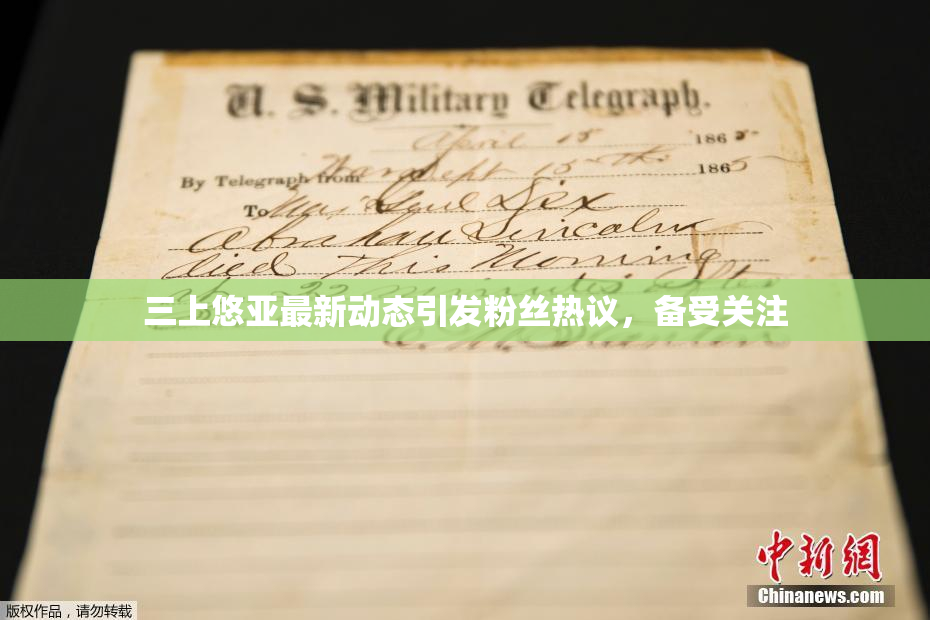 U. S. Military Telegraph.
April 15 1865
By Telegraph from War Dept 15th 1865
To Maj Genl Dix
Abraham Lincoln
died This Morning
22 minutes after
三上悠亚最新动态引发粉丝热议，备受关注
E. M. Stanton
中新网
Chinanews.com
版权作品，请勿转载